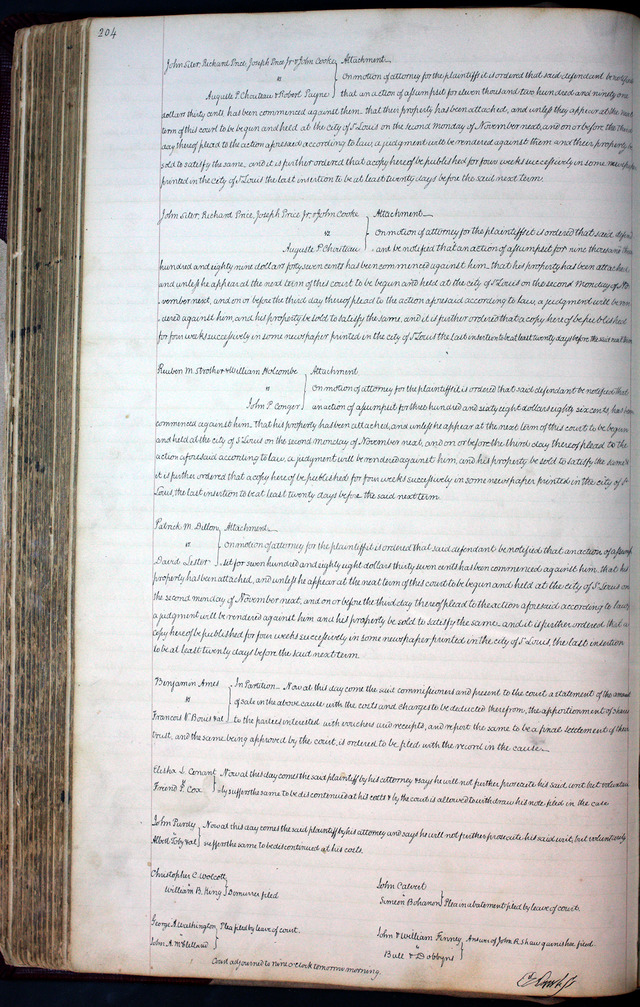 204
John Siter, Richard Price, Joseph Price Jr & John Cooke } Attachment
vs
On motion of attorney for the plaintiffs it is ordered that said defendant be notified
Auguste P. Chouteau & Robert Payne
that an action of assumpsit for eleven thousand two hundred and ninety one
dollars thirty cents has been commenced against them that their property has been attached, and unless they appear at the next
term of this court to be begun and held at the city of St Louis on the second monday of November next, and on or before the third
day thereof plead to the action aforesaid according to law, a judgment will be rendered against them and their property be
sold to satisfy the same, and it is further ordered that a copy hereof be published for four weeks successively in some newspaper
printed in the city of St Louis the last insertion to be at least twenty days before the said next term.
John Siter, Richard Price, Joseph Price Jr. & John Cooke } Attachment
vs
On motion of attorney for the plaintiffs it is ordered that said
Auguste P. Chouteau
be notified that an action of assumpsit for nine thousand
hundred and eighty nine dollars forty seven cents has been commenced against him, that his property has been attached,
and unless he appear at the next term of this court to be begun and held at the city of St Louis on the second Monday of No-
vember next, and on or before the third day thereof plead to the action aforesaid according to law, a judgment will be ren-
dered against him, and his property be sold to satisfy the same, and it is further ordered that a copy hereof be published
for four weeks successively in some newspaper printed in the city of St Louis the last insertion to be at least twenty days before the said next term
Reuben M. Strother & William Holcombe } Attachment
vs
On motion of attorney for the plaintiffs it is ordered that said defendant be notified that
John P. Conger
an action of assumpsit for three hundred and sixty eight dollars eighty six cents has been
commenced against him, that his property has been attached, and unless he appear at the next term of this court to be begun
and held at the city of St Louis on the second monday of November next, and on or before the third day thereof plead to the
action aforesaid according to law, a judgment will be rendered against him, and his property be sold to satisfy the same &
it is further ordered that a copy hereof be published for four weeks successively in some newspaper printed in the city of St
Louis, the last insertion to be at least twenty days before the said next term.
Patrick M. Dillon } Attachment
vs
On motion of attorney for the plaintiff it is ordered that said defendant be notified that an action of assump
David Lester
sit for seven hundred and eighty eight dollars thirty seven cents has been commenced against him, that his
property has been attached, and unless he appear at the next term of this court to be begun and held at the city of St Louis on
the second monday of November next, and on or before the third day thereof plead to the action aforesaid according to law,
a judgment will be rendered against him and his property be sold to satisfy the same and it is further ordered that a
copy hereof be published for four weeks successively in some newspaper printed in the city of St Louis, the last insertion
to be at least twenty days before the said next term.
Benjamin Ames } In Partition. Now at this day come the said commissioners and present to the court a statement of the amount
vs
of sale in the above cause with the costs and charges to be deducted therefrom, the apportionment of shares
to the parties interested with vouchers and receipts, and report the same to be a final settlement of their
trust, and the same being approved by the court, is ordered to be filed with the record in the cause.
Elisha S. Conant } Now at this day comes the said plaintiff by his attorney & says he will not further prosecute his said suit but voluntari-
vs
Cox
ly suffers the same to be discontinued at his costs & by the court is allowed to withdraw his note filed in the case
John Purdy } Now at this day comes the said plaintiff by his attorney and says he will not further prosecute his said writ, but voluntarily
vs
suffers the same to be discontinued at his costs.
Christopher C. Wolcott
vs
William B. King } Demurrer filed
John Calvert
vs
Simeon Bohanon } Plea in abatement filed by leave of court.
George A. Washington } Plea filed by leave of court.
vs
John A. McClelland
John & William Finney } Answer of John R. Shaw garnishee filed.
vs
Bull & Dobbyns
Court adjourned to nine o'clock tomorrow morning.